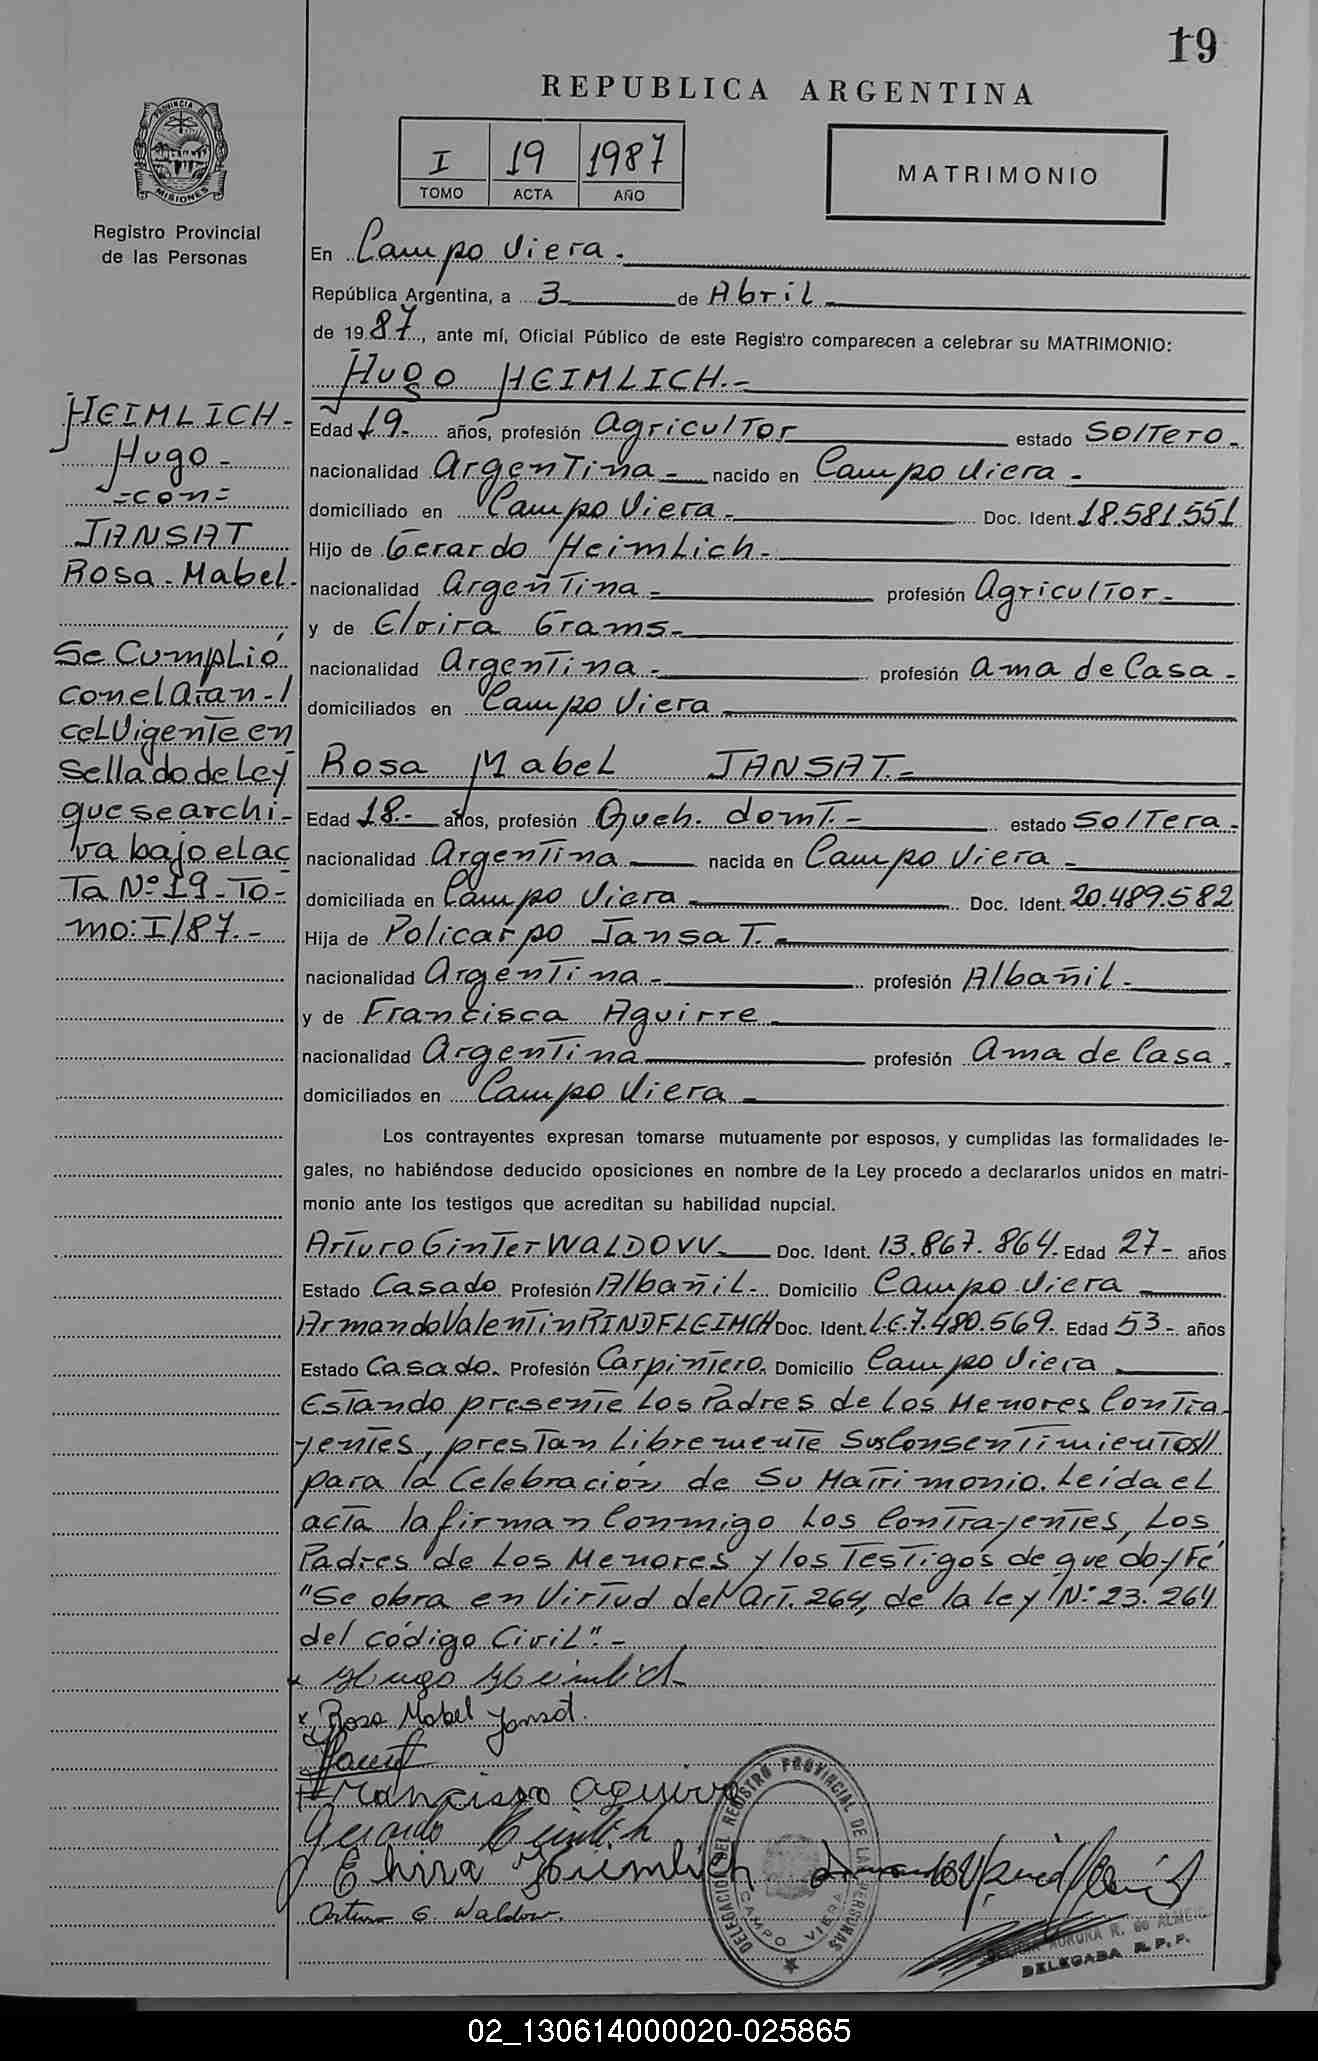 19
REPUBLICA ARGENTINA
I 19 1987
TOMO ACTA AÑO
MATRIMONIO
PROVINCIA DE MISIONES
Registro Provincial
de las Personas
En Campo Viera.-
República Argentina, a 3 de Abril
de 1987, ante mí, Oficial Público de este Registro comparecen a celebrar su MATRIMONIO:
Hugo HEIMLICH.-
Edad 19.- años, profesión Agricultor estado Soltero.-
nacionalidad Argentina.- nacido en Campo Viera.-
domiciliado en Campo Viera.- Doc. Ident. 18.581.551
Hijo de Gerardo Heimlich.-
nacionalidad Argentina.- profesión Agricultor.-
y de Elvira Grams.-
nacionalidad Argentina.- profesión Ama de Casa.-
domiciliados en Campo Viera
Rosa Mabel JANSAT.=
Edad 18.- años, profesión Queh. domt.- estado Soltera.-
nacionalidad Argentina nacida en Campo Viera.-
domiciliada en Campo Viera Doc. Ident. 20.489.582
Hija de Policarpo Jansat.-
nacionalidad Argentina.- profesión Albañil.-
y de Francisca Aguirre
nacionalidad Argentina profesión Ama de Casa.
domiciliados en Campo Viera.-
HEIMLICH-
Hugo-
=con=
JANSAT
Rosa-Mabel.
Se Cumplió
con el Aran-/
cel Vigente en
Sellado de Ley
que se archi-
va bajo el ac
Ta Nº 19-To-
mo: I/87.-
Los contrayentes expresan tomarse mutuamente por esposos, y cumplidas las formalidades le-
gales, no habiéndose deducido oposiciones en nombre de la Ley procedo a declararlos unidos en matri-
monio ante los testigos que acreditan su habilidad nupcial.
Arturo Ginter WALDOW. Doc. Ident. 13.867.864. Edad 27- años
Estado Casado Profesión Albañil. Domicilio Campo Viera
Armando Valentin RINDFLEIHCH Doc. Ident. L.E.7.480.569. Edad 53- años
Estado Casado. Profesión Carpintero. Domicilio Campo Viera
Estando presente Los Padres de Los Menores Contra-
yentes, prestan Libremente Sus Consentimientos//
para la Celebración de Su Matrimonio. Leída el
acta la firman Conmigo Los Contrayentes, Los
Padres de Los Menores y los Testigos de que doy Fé
"Se obra en Virtud del Art. 264, de la ley Nº 23.264
del código Civil".-
x Hugo Heimlich
x Rosa Mabel Jansat.
Jansat
Francisca Aguirre
Gerardo Heimlich
Elvira Heimlich
Arturo G. Waldow.
DELEGACION DEL REGISTRO PROVINCIAL DE LAS PERSONAS
CAMPO VIERA
AURORA R. DE ALMEID
DELEGADA R.P.P.
02_130614000020-025865